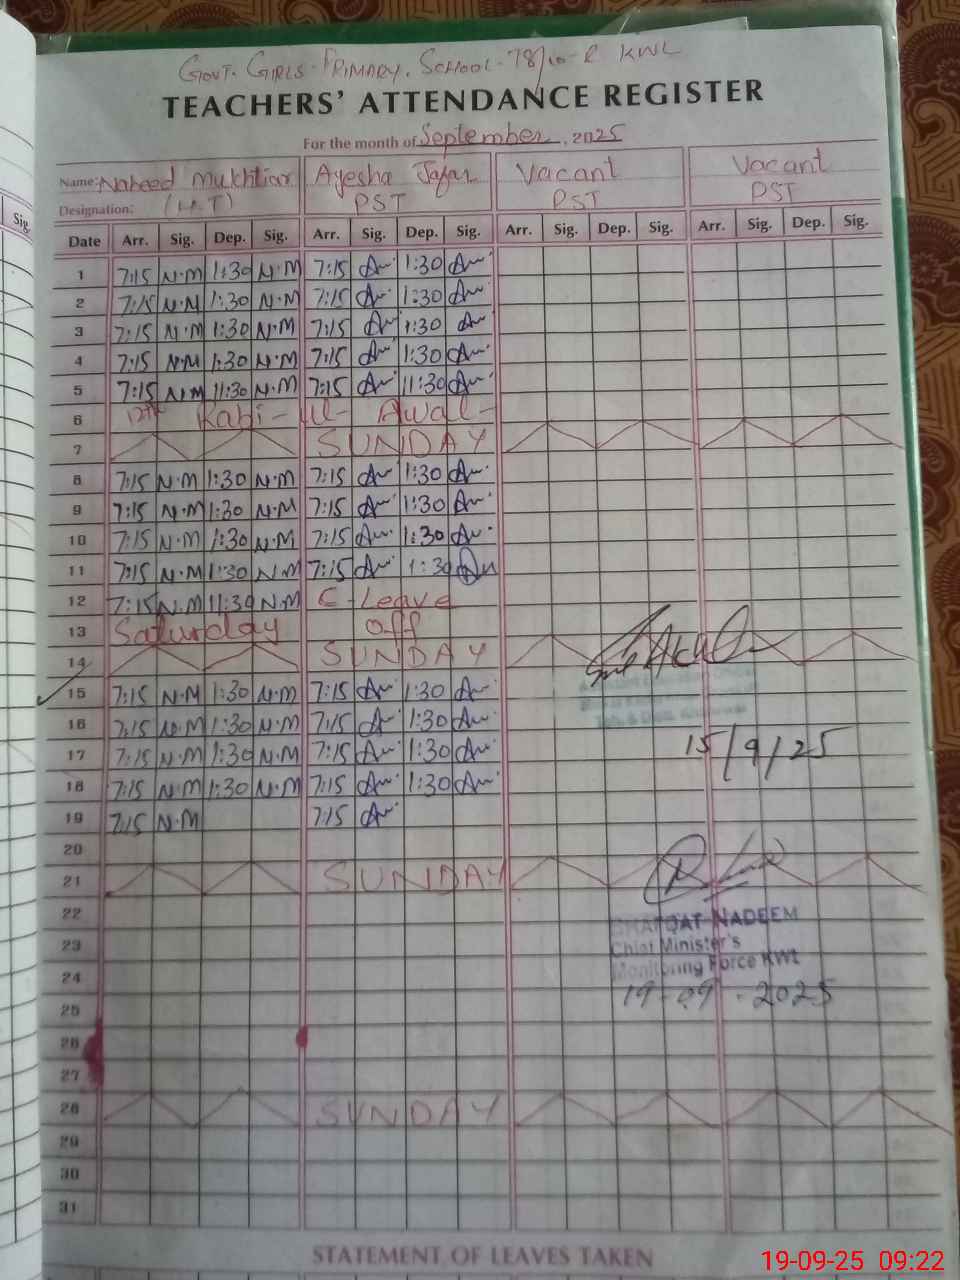 GOVT. GIRLS. PRIMARY. SCHOOL. 78/10-R KWL
TEACHERS' ATTENDANCE REGISTER
For the month of September, 2025
Name: Naheed Mukhtiar Ayesha Jafar Vacant Vacant
Designation: (H.T) PST PST PST
Sig. Date Arr. Sig. Dep. Sig. Arr. Sig. Dep. Sig. Arr. Sig. Dep. Sig. Arr. Sig. Dep. Sig.
1 7:15 N.M 1:30 N.M 7:15 1:30
2 7:15 N.M 1:30 N.M 7:15 1:30
3 7:15 N.M 1:30 N.M 7:15 1:30
4 7:15 N.M 1:30 N.M 7:15 1:30
5 7:15 N.M 11:30 N.M 7:15 11:30
6 12th Rabi-ul-Awal-
7 SUNDAY
8 7:15 N.M 1:30 N.M 7:15 1:30
9 7:15 N.M 1:30 N.M 7:15 1:30
10 7:15 N.M 1:30 N.M 7:15 1:30
11 7:15 N.M 1:30 N.M 7:15 1:30
12 7:15 N.M 11:30 N.M C-Leave
13 Saturday off
14 SUNDAY
15 7:15 N.M 1:30 N.M 7:15 1:30
16 7:15 N.M 1:30 N.M 7:15 1:30
17 7:15 N.M 1:30 N.M 7:15 1:30
15/9/25
18 7:15 N.M 1:30 N.M 7:15 1:30
19 7:15 N.M 7:15
20
21 SUNDAY
22
SHAFQAT NADEEM
23
Chief Minister's
24
Monitoring Force KWL
25
19-09-2025
26
27
28 SUNDAY
29
30
31
STATEMENT OF LEAVES TAKEN
19-09-25 09:22